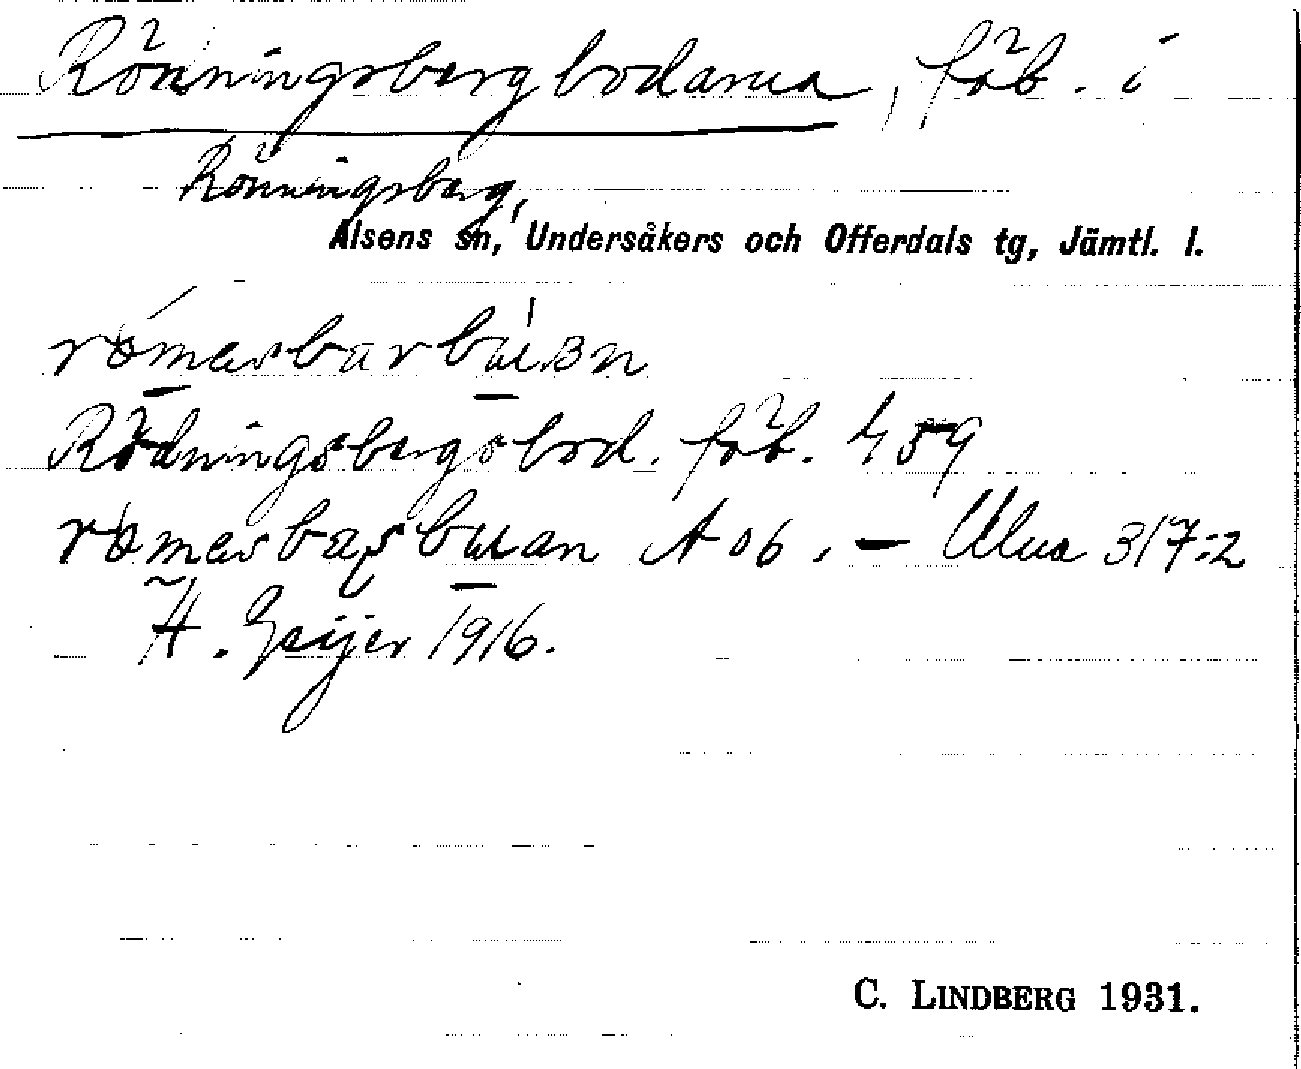 Rönningsbergbodarna, fäb. i
Rönningsberg,
Alsens sn, Undersåkers och Offerdals tg, Jämtl. l.
Rödningsbergsbod. fäb. 459
A 06. — Ulua 317:2
H. Geijer 1916.
C. LINDBERG 1931.